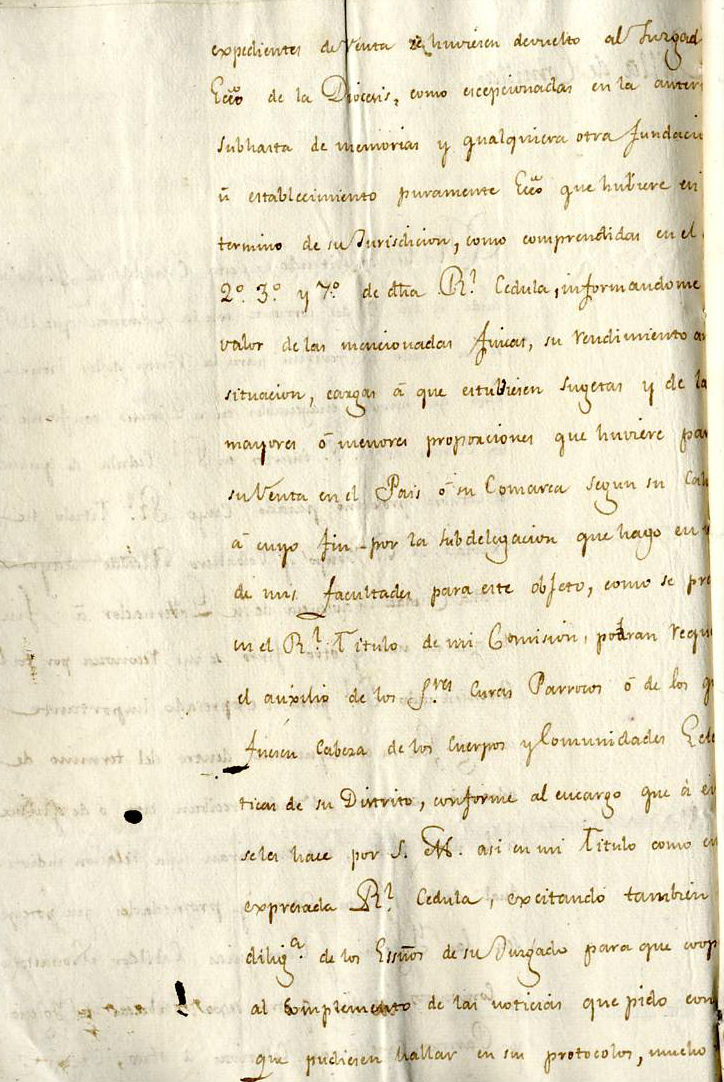 expedientes de Venta se huviesen devuelto al Jurgad
Ecco de la Diocesis, como escepcionadas en la anteri
subhasta de memorias y qualquiera otra fundaci
ù establecimiento puramente Ecco que hubiere en
termino de su Jurisdicion, como comprendidas en el
2º. 3º. y 7º. de dha Rl. Cedula, informandome
valor de las mencionadas fincas, su rendimiento a
situacion, cargas â que estubiesen sugetas y de la
mayores ô menores proporciones que huviere pa
su Venta en el Pais ô su Comarca segun su Cal
â cuyo fin por la subdelegacion que hago en
de mis facultades para este objeto, como se pre
en el Rl. Titulo de mi Comision, podran requ
el auxilio de los Sres Curas Parrocos ô de los q
fuesen Cabeza de los Cuerpos y Comunidades Ecle
ticas de su Distrito, conforme al encargo que â e
se les hace por S. M. asi en mi Titulo como en
expresada Rl. Cedula, excitando tambien
diliga. de los Essnos de su Jurgado para que coop
al complemento de las noticias que pido con
que pudiesen hallar en sus protocolos, mucho